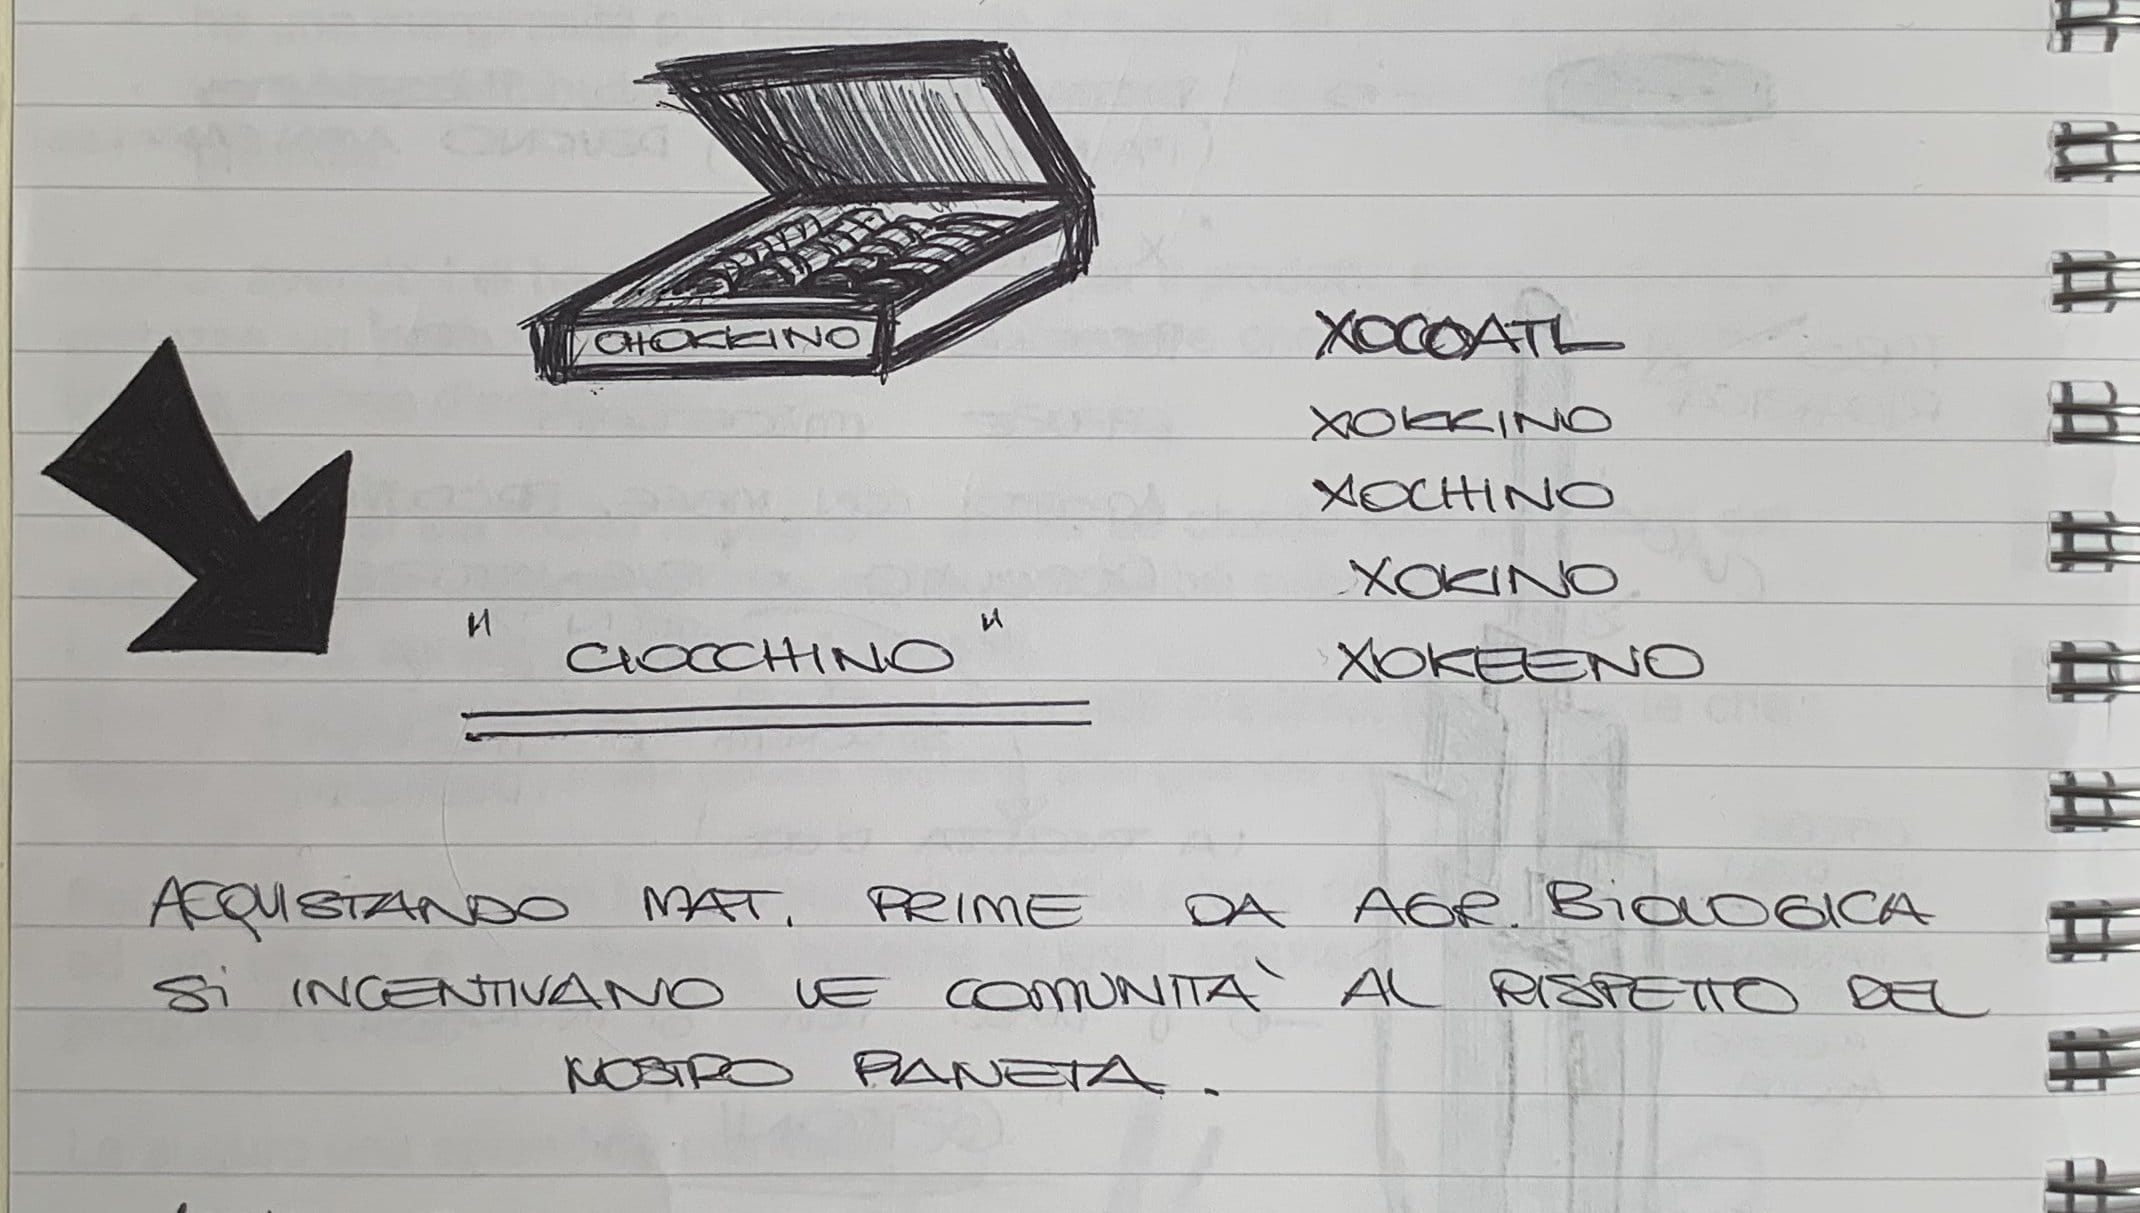 CHOKKINO
XOCOATL
XOKKINO
XOCHINO
XOKINO
" CIOCCHINO "
XOKEENO
ACQUISTANDO MAT. PRIME DA AGR. BIOLOGICA
SI INCENTIVANO LE COMUNITA' AL RISPETTO DEL
NOSTRO PIANETA.